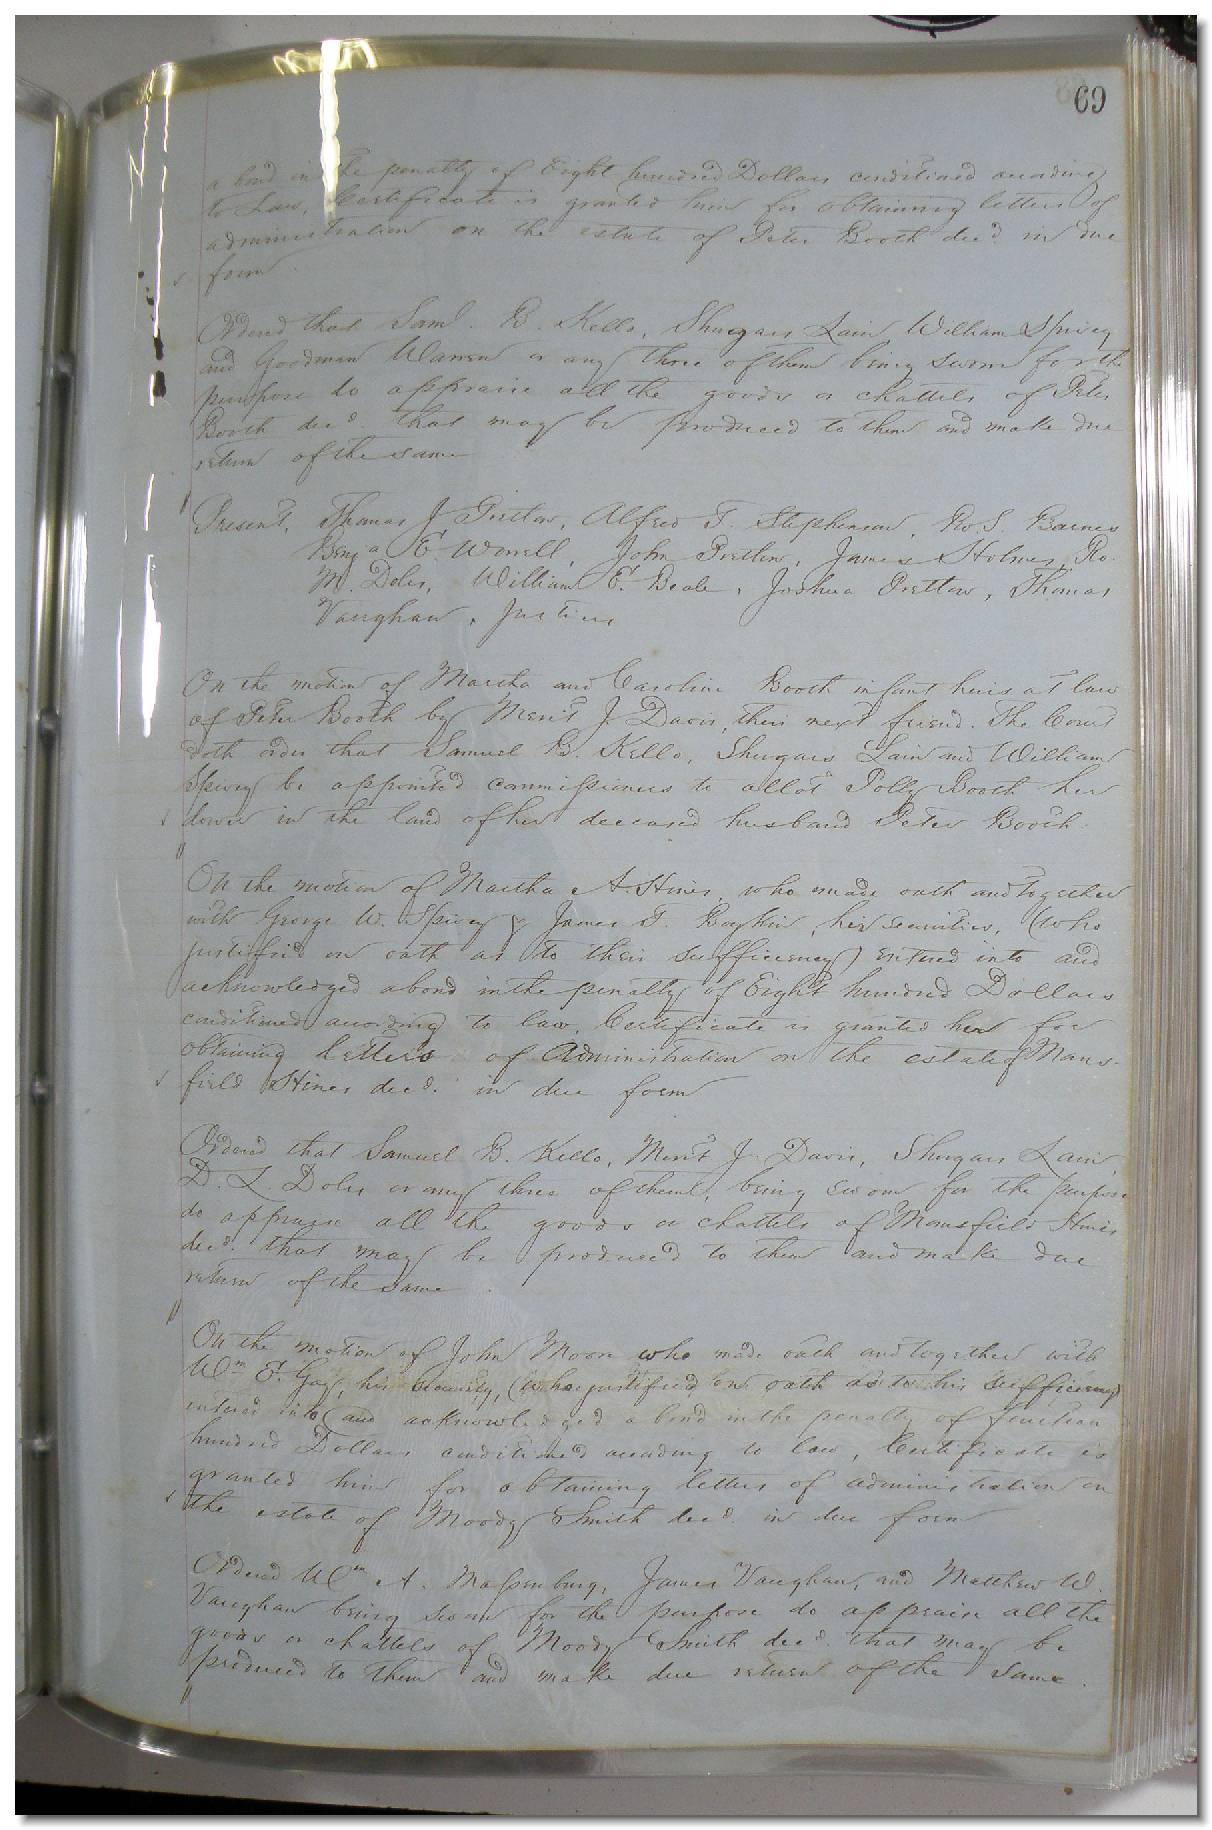 69
a bond in the penalty of Eight hundred Dollars conditioned according
to Law, Certificate is granted him for obtaining letters of
administration on the estate of Peter Booth decd in due
form.
Ordered that Saml. B. Kello, Shugars Lain William Spivey
and Goodman Warren or any three of them being sworn for the
purpose do appraise all the goods or chattels of Peter
Booth decd. that may be produced to them and make due
return of the same
Present, Thomas J. Pretlow, Alfred T. Stephenson, Ro. S. Barnes
Benja E. Worrell, John Pretlow, James Holmes, Ro.
M. Doles, William E. Beale, Joshua Pretlow, Thomas
Vaughan, Justices
On the motion of Martha and Caroline Booth infant heirs at law
of Peter Booth by Merit J Davis, their next friend. The Court
doth order that Samuel B. Kello, Shugars Lain and William
Spivey be appointed commissioners to allot Polly Booth her
dower in the land of her deceased husband Peter Booth.
On the motion of Martha A Hines, who made oath and together
with George W. Spivey & James T. Boykin, her securities, (who
justified on oath as to their sufficiency) entered into and
acknowledged a bond in the penalty of Eight hundred Dollars
conditioned according to law, Certificate is granted her for
obtaining letters of Administration on the estate of Mans-
field Hines decd. in due form
Ordered that Samuel B. Kello, Merit J Davis, Shugars Lain,
D. L. Doles or any three of them, being sworn for the purpose
do appraise all the goods or chattels of Mansfield Hines
decd. that may be produced to them and make due
return of the same.
On the motion of John Moore who made oath and together with
Wm E. Gay, his security, (who justified on oath as to his sufficiency)
entered into and acknowledged a bond in the penalty of fourteen
hundred Dollars conditioned according to law, Certificate is
granted him for obtaining letters of administration on
the estate of Moody Smith decd. in due form
Ordered Wm A. Massenburg, James Vaughan, and Matthew W.
Vaughan being sworn for the purpose do appraise all the
goods or chattels of Moody Smith decd. that may be
produced to them and make due return of the same.